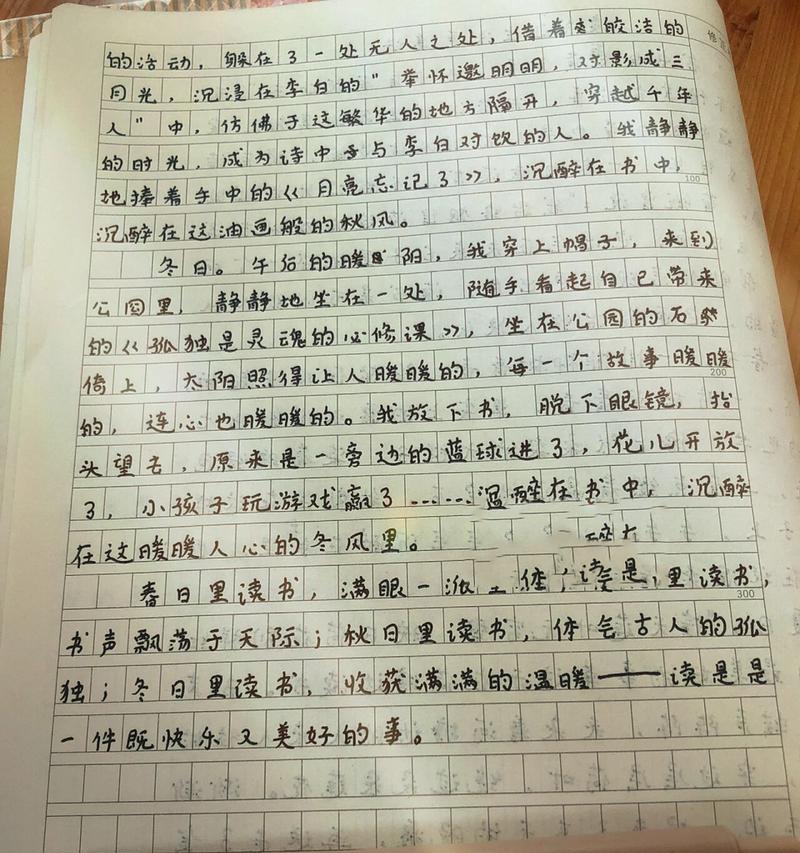 的活动，躲在了一处无人之处，借着皎洁的
月光，沉浸在李白的“举怀邀明明，对影成三
人”中，仿佛于这繁华的地方隔开，穿越千年
的时光，成为诗中与李白对饮的人。我静静
地捧着手中的《月亮忘记了》，沉醉在书中，
100
沉醉在这油画般的秋风。
冬日。午后的暖阳，我穿上帽子，来到
公园里，静静地坐在一处，随手看起自己带来
的《孤独是灵魂的必修课》，坐在公园的石
倚上，太阳照得让人暖暖的，每一个故事暖暖
200
的，连心也暖暖的。我放下书，脱下眼镜，抬
头望去，原来是一旁边的蓝球进了，花儿开放
了，小孩子玩游戏赢了……沉醉在书中，沉醉
在这暖暖人心的冬风里。
春日里读书，满眼一派 里读书，
300
书声飘荡于天际；秋日里读书，体会古人的孤
独；冬日里读书，收获满满的温暖——读是是
一件既快乐又美好的事。